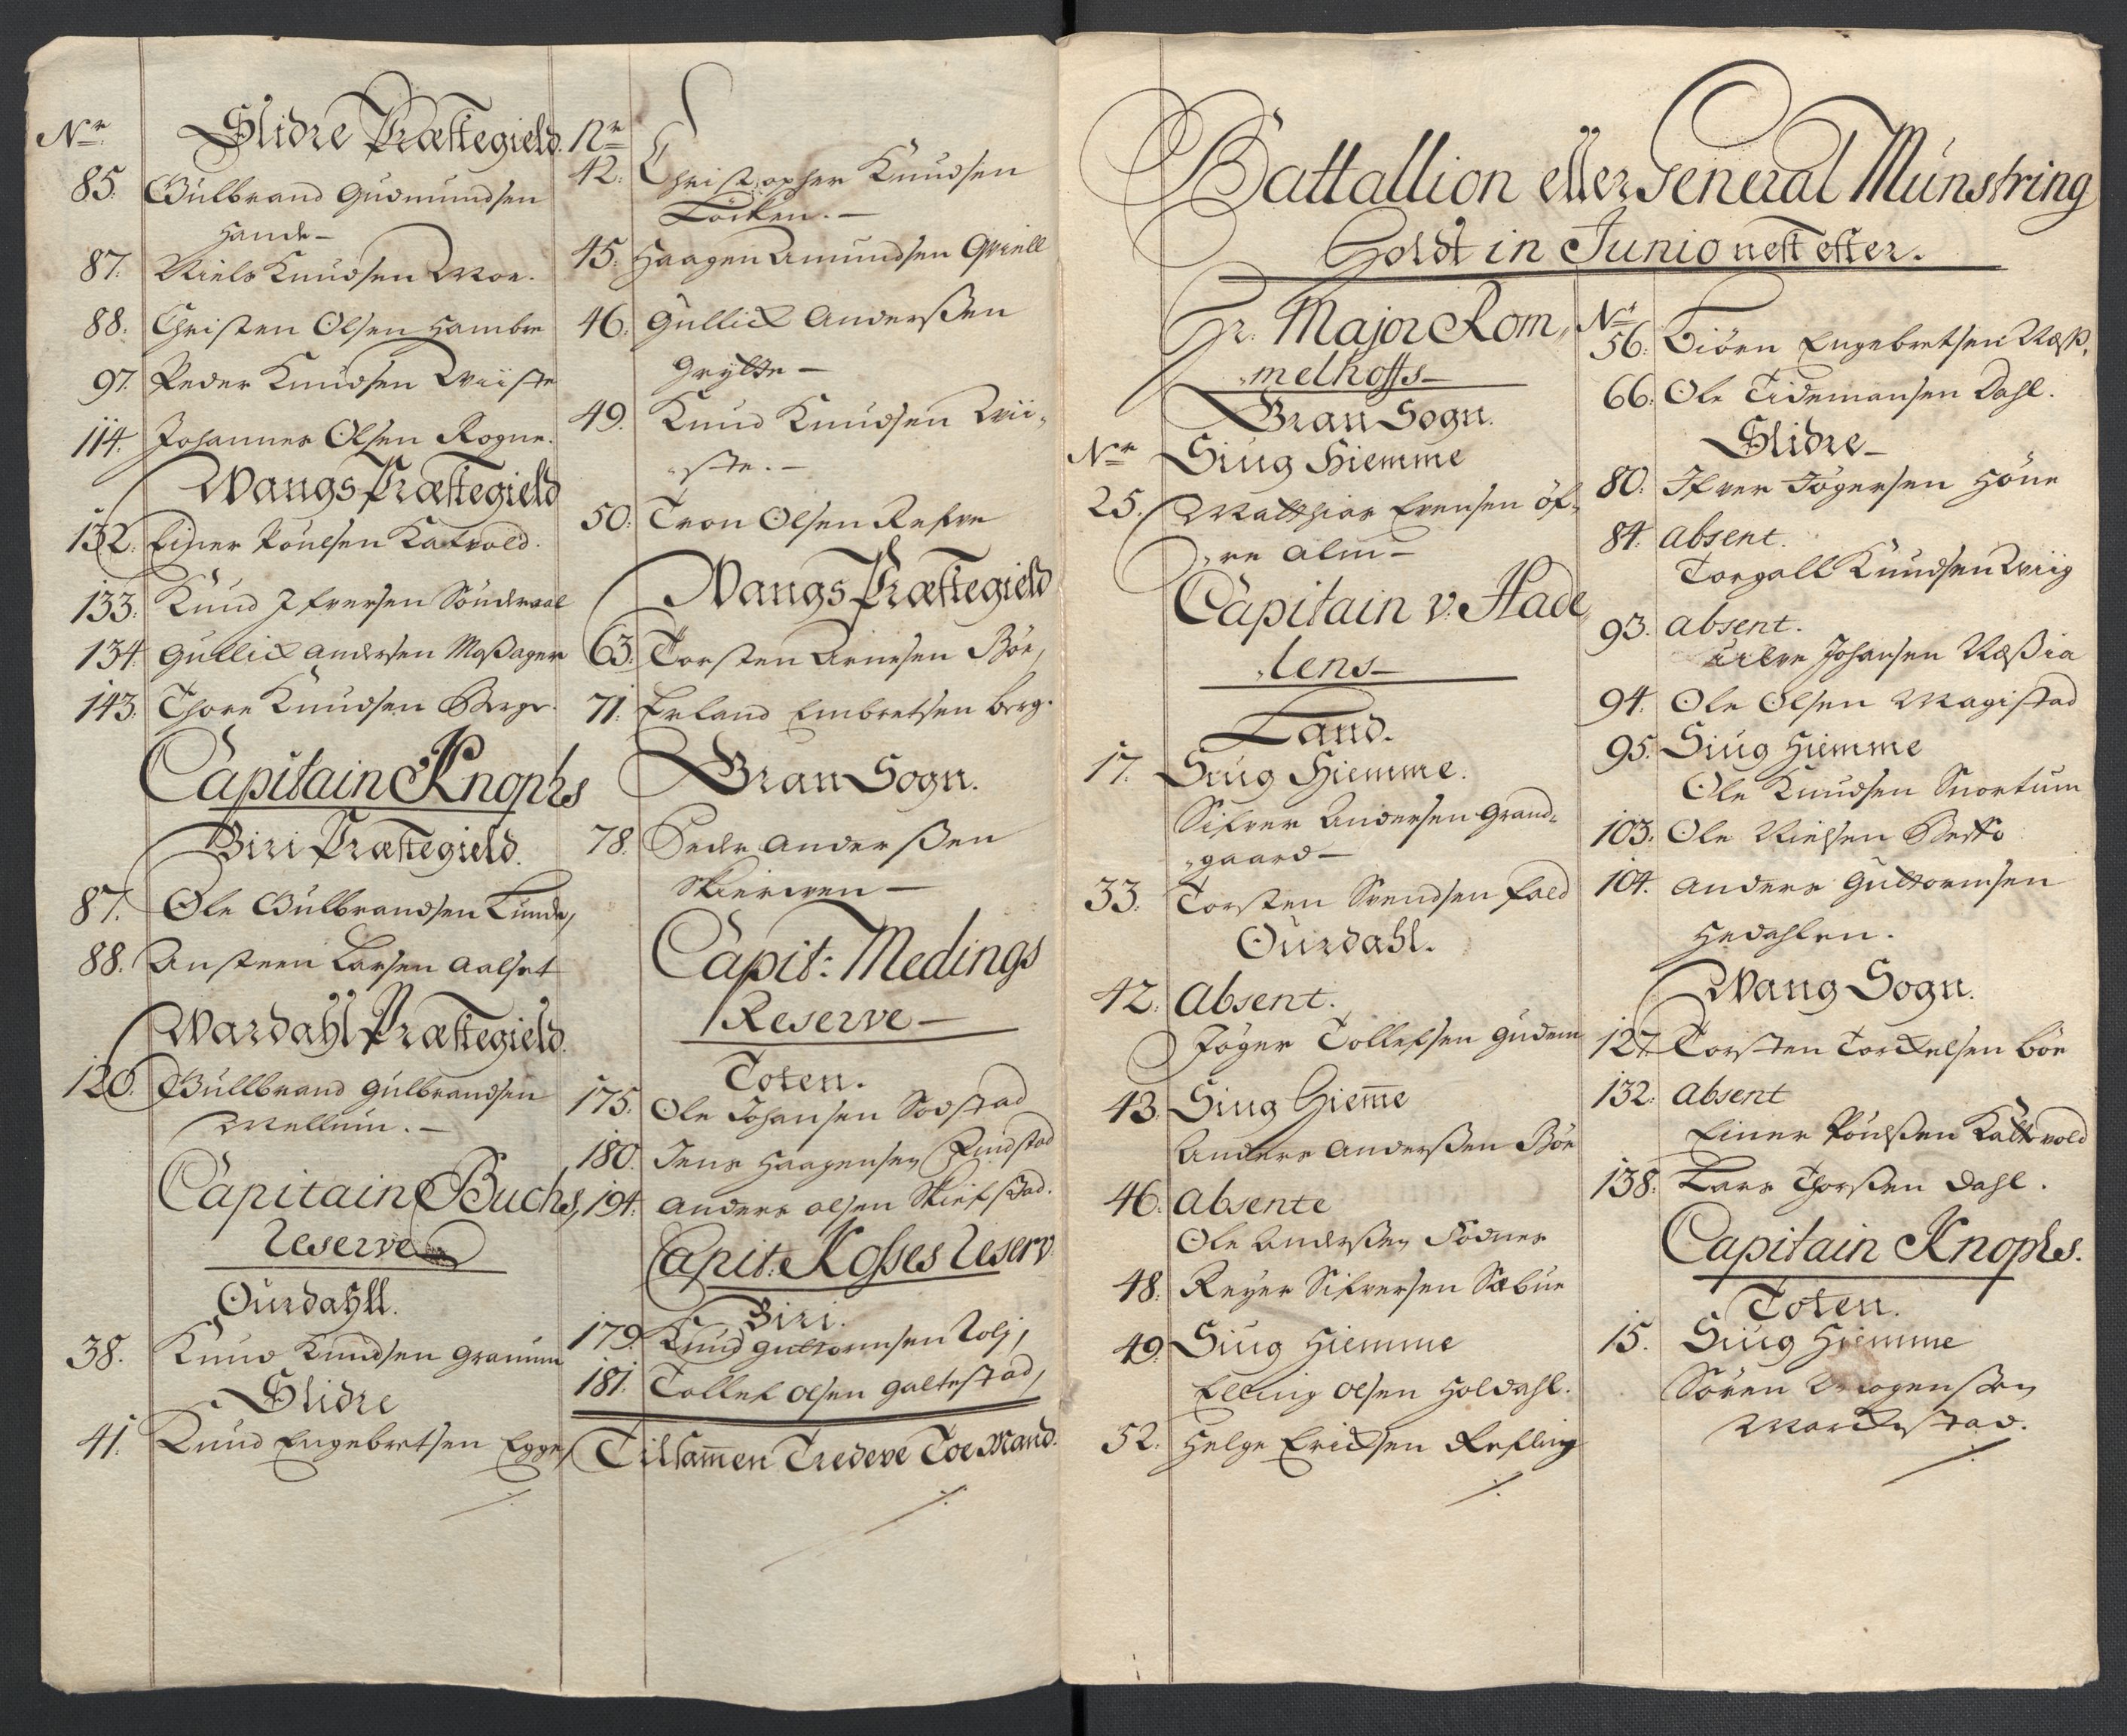 Nr.
Slidre Præstegield.
85. Gulbrand Gudmundsen
Hande –
87. Niels Knudsen Moe.
88. Christen Olsen Hambre
97. Peder Knudsen Wiiste
114. Johannes Olsen Rogne.
Wangs Præstegield
132. Einer Poulsen Katvold.
133. Knud Ifversen Sönderaal
134. Gullick Andersen Moßager
143. Thore Knudsen Berge.
Capitain Knophs
Biri Præstegield.
87. Ole Gulbrandsen Lunde,
88. Anstenn Larsen Aalset
Wardahl Præstegield.
120. Gullbrand Gulbrandsen
Mellum. –
Capitain Buchs,
Reserve
Ourdahll.
38. Knud Knudsen Granum
Slidre
41. Knud Engebretsen Egge,
Nr
42. Christopher Knudsen
Löcken. –
45. Haagen Amundsen Qviell
46. Gullick Anderßen
Grytte –
49. Knud Knudsen Wii-
ste. –
50. Tron Olsen Refve
Wangs Præstegield
63. Torsten Arnesen Böe,
71. Erland Embretsen Berg.
Gran Sogn.
78. Peder Anderßen
Skierven –
Capit: Medings
Reserve –
Toten.
175. Ole Johansen Sodstad
180. Jens Haagensen Rundstad
194. Anders Olsen Skiefstad.
Capit: Koßes Reserv.
Biri.
179. Knud Guttormsen Rolj,
181. Tollef Olsen Galtestad,
Tilsammen Tredeve Toe Mand.
Battallion eller General Münstring
Holdt in Junio nest efter.
Hr. Major Rom,
melhoffs –
Gran Sogn.
Nr Siug Hiemme
25. Matthias Evensen Öf-
re Alm –
Capitain v: Hade,
lens –
Land.
17. Siug Hiemme.
Sifver Andersen Grand-
gaard –
33. Torsten Svendsen Fald
Ourdahl.
42. Absent.
Jöger Tollefsen Gudem
43. Siug Hiemme
Anders Anderßen Böe
46. Absente
Ole Anderßen Fodnes
48. Reyer Sifversen Sæbue
49. Siug Hiemme
Elling Olsen Holdahl.
52. Helge Ericksen Refling
Nr
56. Biörn Engebretsen Næß,
66. Ole Tidemansen Dahl.
Slidre –
80. Ifver Jögersen Höue
84. Absent.
Torgall Knudsen Wiig
93. Absent.
Johansen Næßia
94. Ole Olsen Magistad
95. Siug Hiemme
Ole Knudsen Snortum
103. Ole Nielsen Besko
104. Anders Guttormsen
Hedahlen.
Wang Sogn.
127. Torsten Torckelsen Böe
132. Absent
Einer Poulßen Kattevold
138. Lars Thorßen Dahl.
Capitain Knophs.
Toten.
15. Siug Hiemme
Sören Mogensen
Markestad.